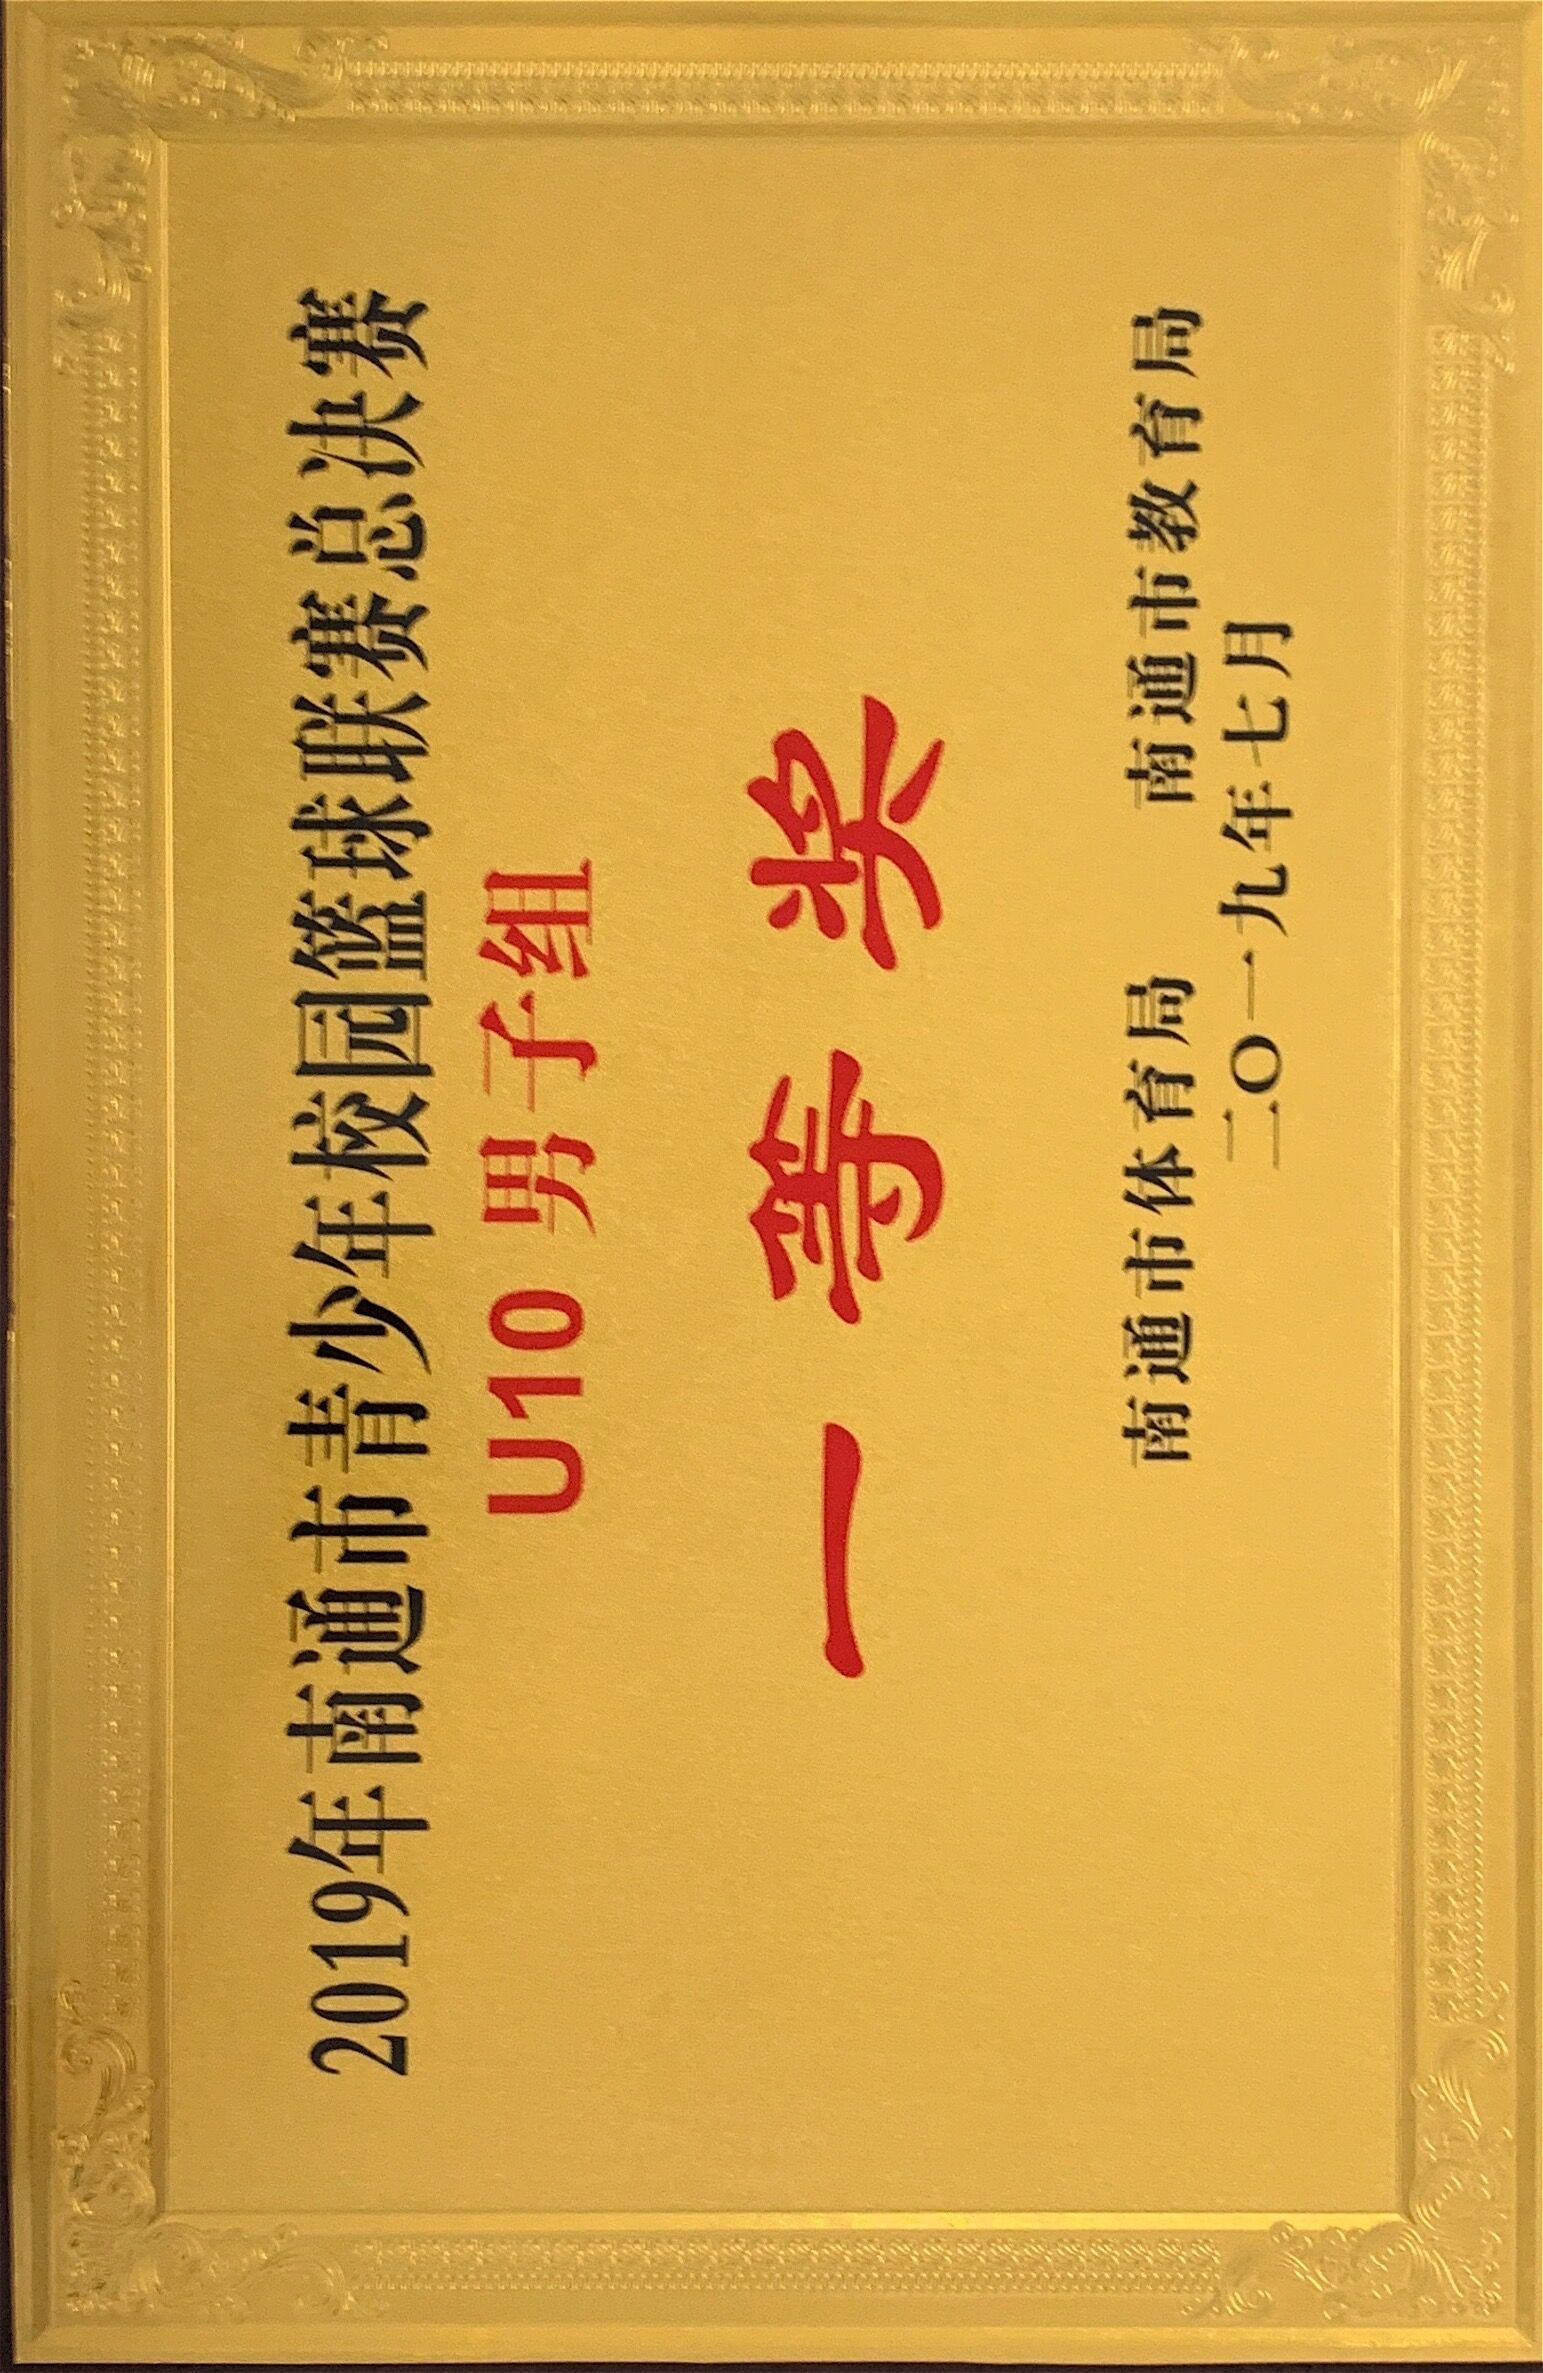 2019年南通市青少年校园篮球联赛总决赛
U10 男子组
一等奖
南通市体育局 南通市教育局
二〇一九年七月